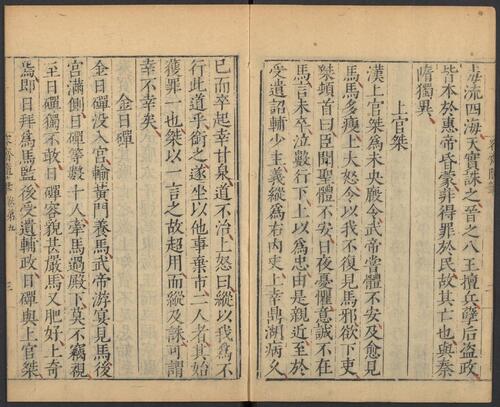 毒流四海天實誅之晉之八王擅兵孽后盜政
皆本於惠帝昏蒙非得罪於民故其亡也與秦
隋獨異
上官桀
漢上官桀為未央廏令武帝嘗體不安及愈見
馬馬多瘦上大怒令以我不復見馬邪欲下吏
桀頓首曰臣聞聖體不安日夜憂懼意誠不在
馬言未卒泣數行下上以為忠由是親近至於
受遺詔輔少主義縱為右內史上幸鼎湖病久
已而卒起幸甘泉道不治上怒曰縱以我為不
行此道乎銜之遂坐以他事棄市二人者其始
獲罪一也桀以一言之故超用而縱及誅可謂
幸不幸矣
金日磾
金日磾沒入宮輸黃門養馬武帝游宴見馬後
宮滿側日磾等數十人牽馬過殿下莫不竊視
至日磾獨不敢日磾容貌甚嚴馬又肥好上奇
焉即日拜為馬監後受遺輔政日磾與上官桀
三